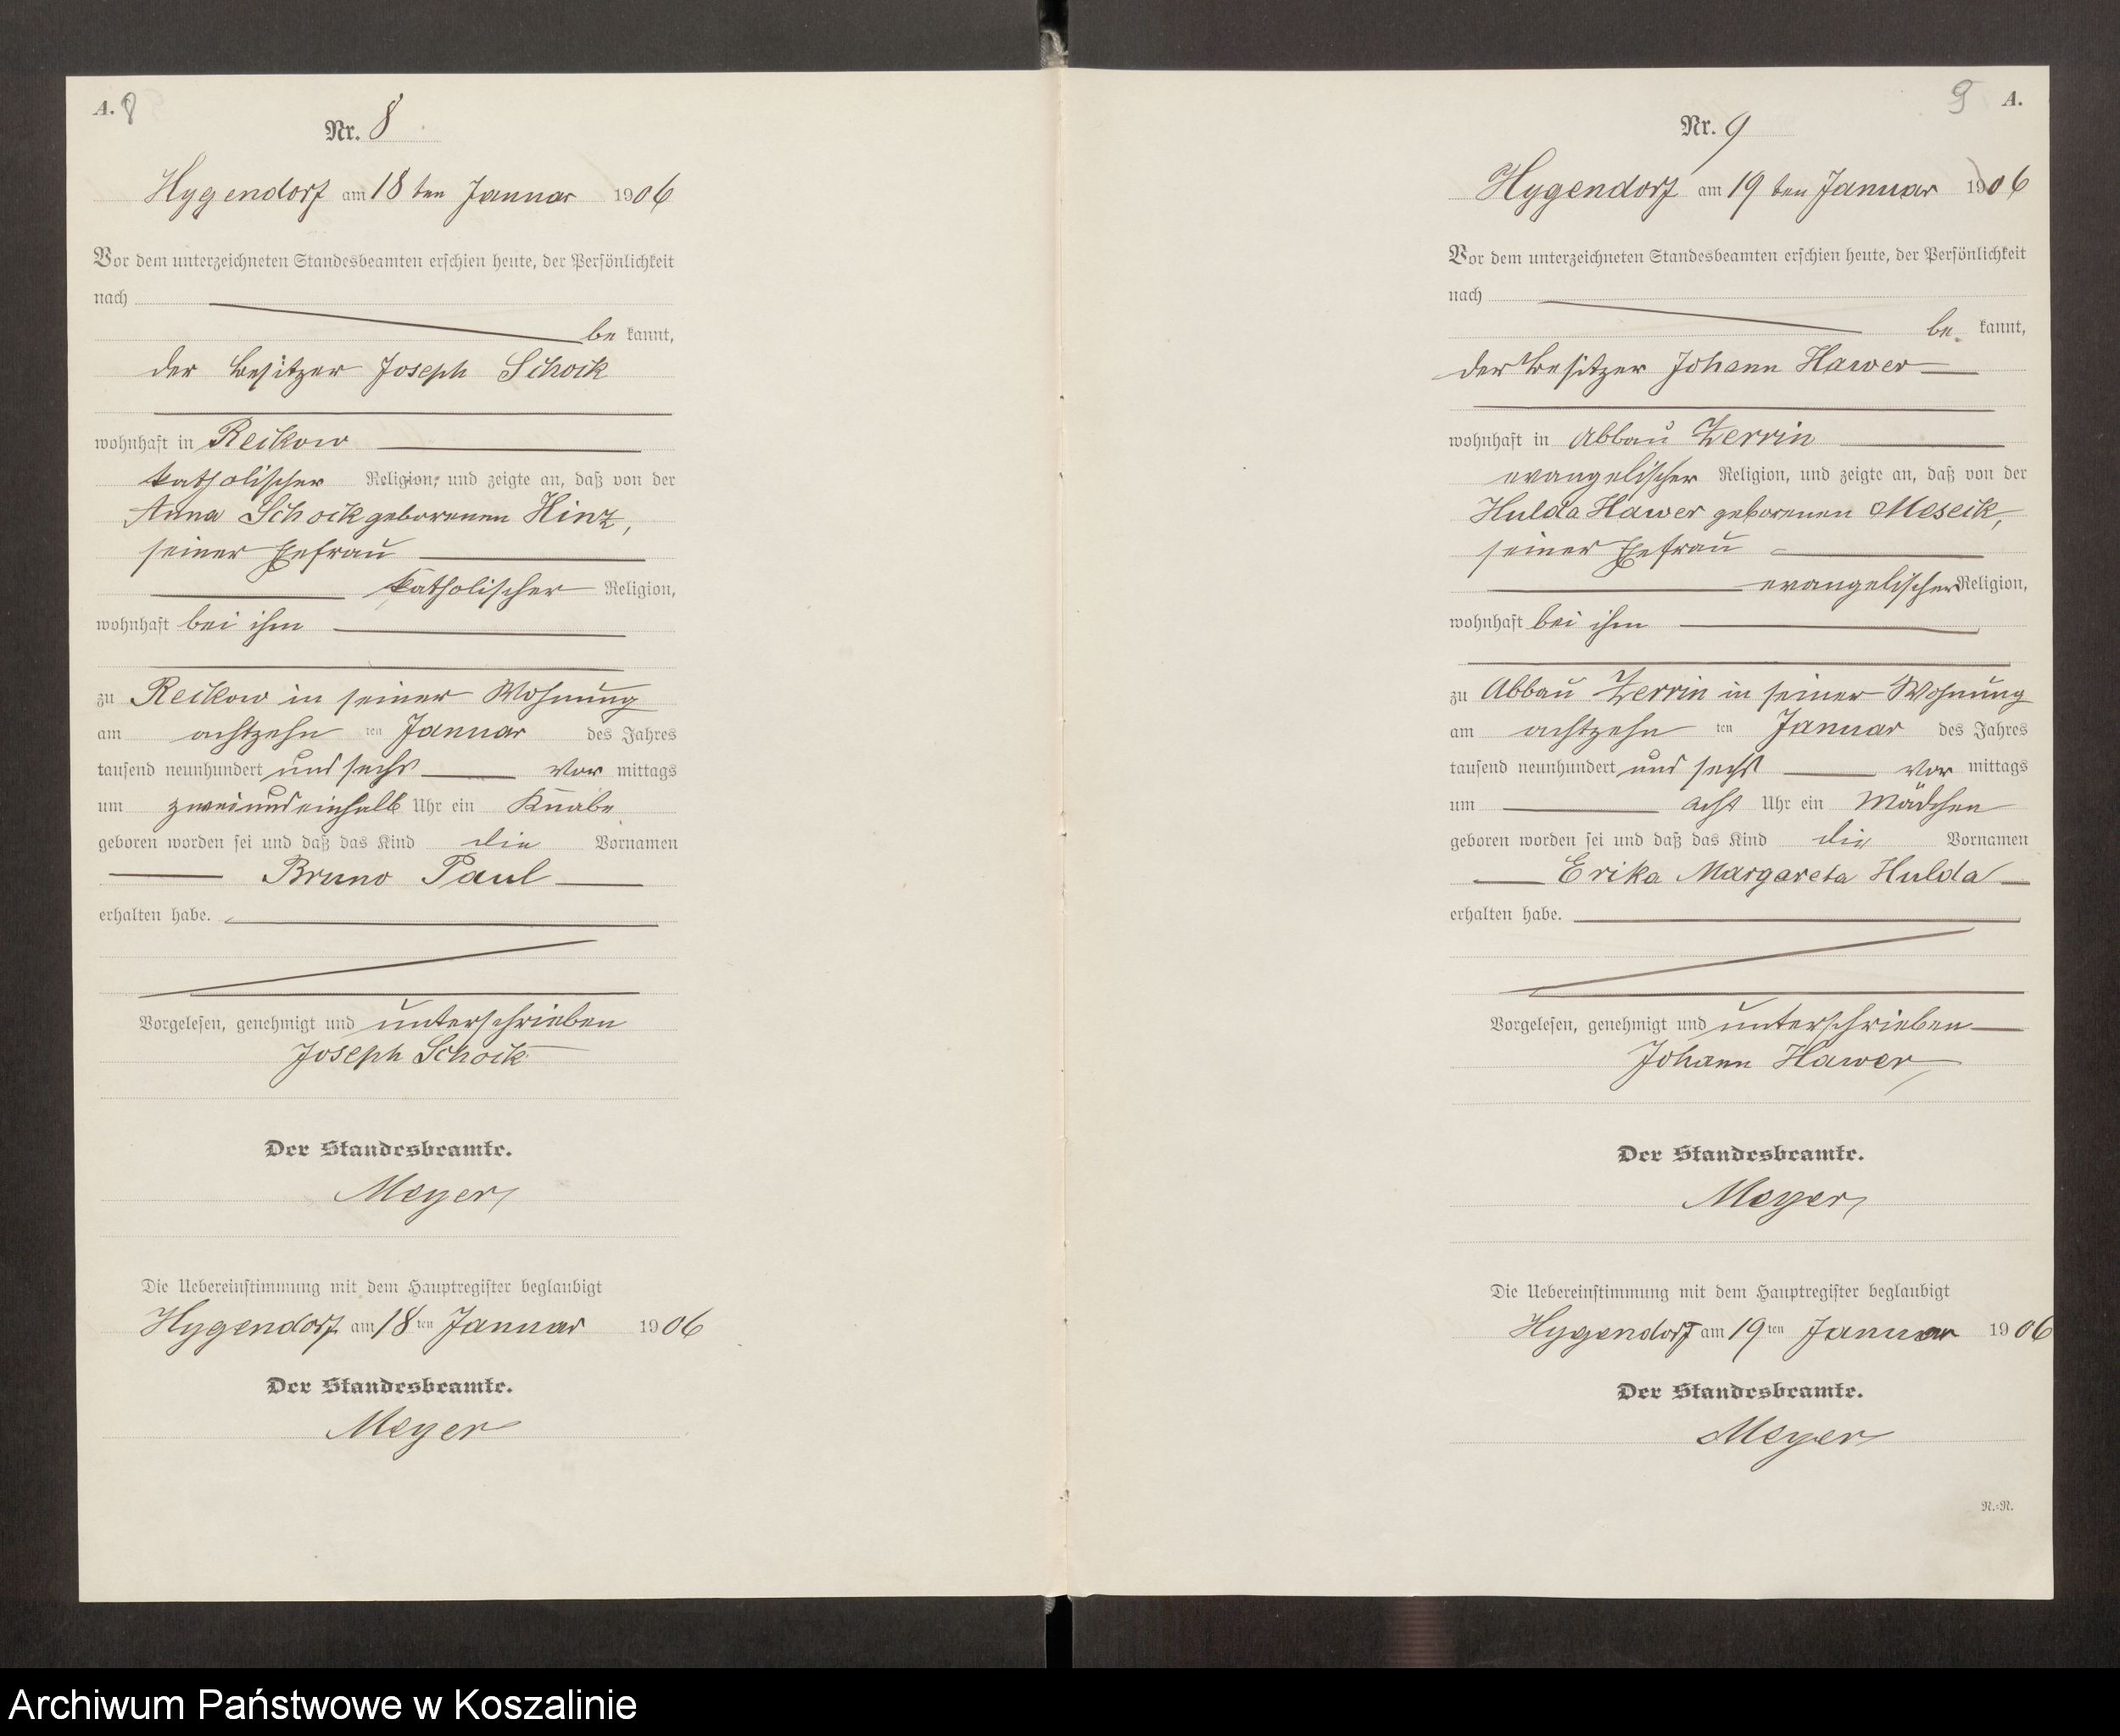 A. 8
Nr. 8
Hygendorf am 18 ten Januar 1906
Vor dem unterzeichneten Standesbeamten erschien heute, der Persönlichkeit
nach
be kannt,
der Besitzer Joseph Schock
wohnhaft in Reikow
katholischer Religion, und zeigte an, daß von der
Anna Schock geborenen Hinz,
seiner Ehefrau
katholischer Religion,
wohnhaft bei ihm
zu Reikow in seiner Wohnung
am achtzehn ten Januar des Jahres
tausend neunhundert und sechs Vor mittags
um zweiundeinhalb Uhr ein Knabe
geboren worden sei und daß das Kind die Vornamen
Bruno Paul
erhalten habe.
Vorgelesen, genehmigt und unterschrieben
Joseph Schock
Der Standesbeamte.
Meyer
Die Uebereinstimmung mit dem Hauptregister beglaubigt
Hygendorf am 18 ten Januar 1906
Der Standesbeamte.
Meyer
9 A.
Nr. 9
Hygendorf am 19 ten Januar 1906
Vor dem unterzeichneten Standesbeamten erschien heute, der Persönlichkeit
nach
be kannt,
der Besitzer Johann Hawer
wohnhaft in Abbau Zerrin
evangelischer Religion, und zeigte an, daß von der
Hulda Hawer geborenen Meseik,
seiner Ehefrau
evangelischer Religion,
wohnhaft bei ihm
zu Abbau Zerrin in seiner Wohnung
am achtzehn ten Januar des Jahres
tausend neunhundert und sechs Vor mittags
um acht Uhr ein Mädchen
geboren worden sei und daß das Kind die Vornamen
Erika Margareta Hulda
erhalten habe.
Vorgelesen, genehmigt und unterschrieben
Johann Hawer
Der Standesbeamte.
Meyer
Die Uebereinstimmung mit dem Hauptregister beglaubigt
Hygendorf am 19 ten Januar 1906
Der Standesbeamte.
Meyer
N.=N.
Archiwum Państwowe w Koszalinie